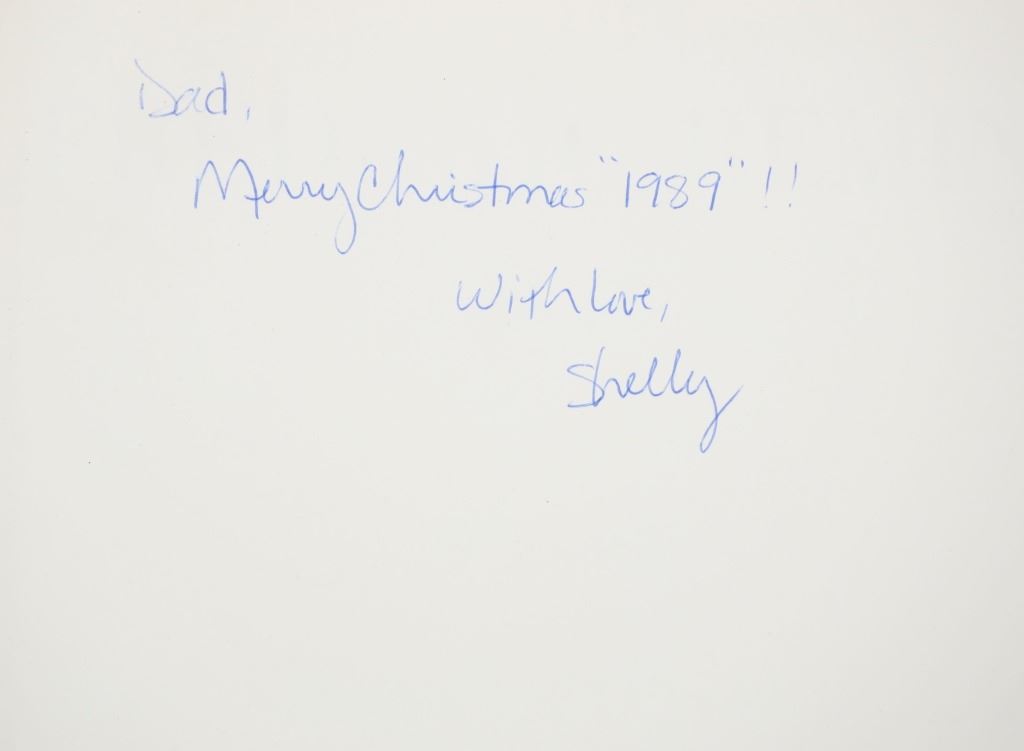 Dad,
Merry Christmas "1989" !!
With love,
Shelly